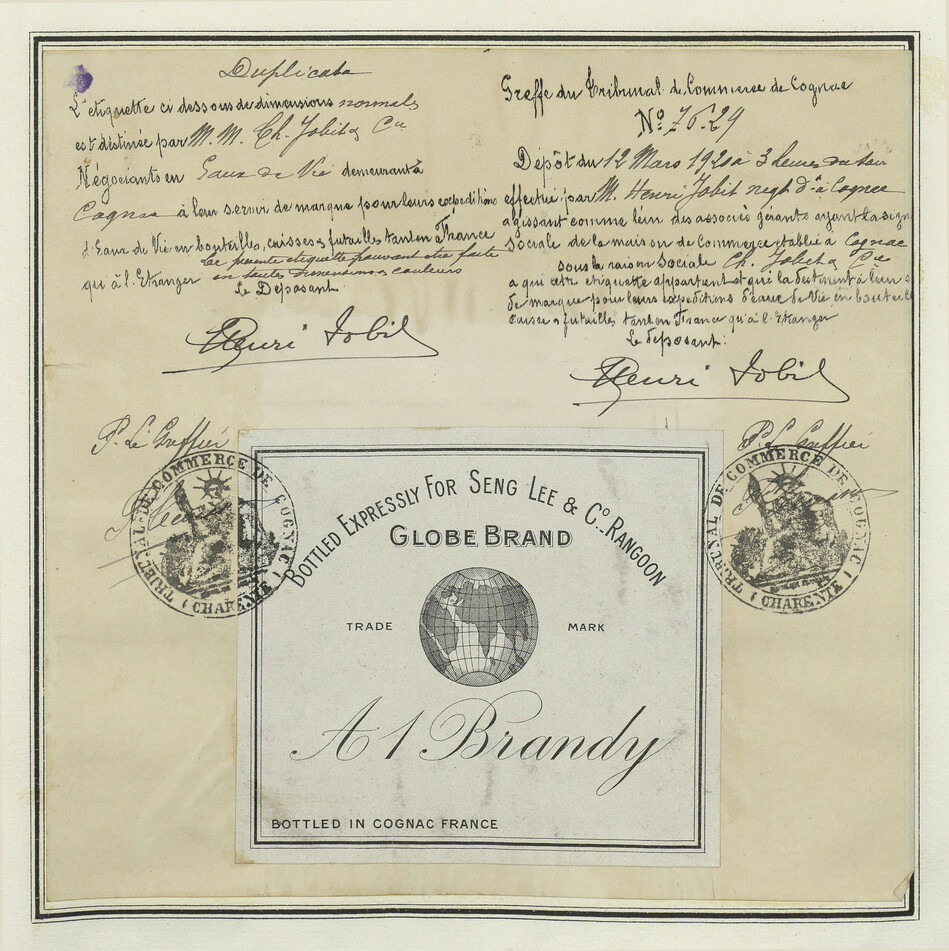 Duplicata
L'etiquette ci dessous de dimensions normales
est destinée par M. M. Ch. Jobit & Cie
Négociants en Eaux de Vie demeurant à
Cognac à leur servir de marque pour leurs expeditions
d'Eaux de Vie en bouteilles, caisses & futailles tant en France
qui à l'Etranger la presente etiquette pouvant etre faite
en toutes dimensions & couleurs
Le Deposant
Henri Jobit
P. Le Greffier
Greffe du Tribunal de Commerce de Cognac
No 76.29
Dépôt du 12 Mars 1920 à 3 heures du soir
effectué par M. Henri Jobit negt dt à Cognac
agissant comme l'un des associés gérants ayant la sign
sociale de la maison de Commerce établie à Cognac
sous la raison sociale Ch. Jobit & Cie
a qui cette etiquette appartient et qui la destinent à leur s
de marque pour leurs expeditions d'eaux de Vie en bouteill
caisses & futailles tant en France qu'à l'Etranger
Le deposant:
Henri Jobit
P. Le Greffier
TRIBUNAL DE COMMERCE DE COGNAC
(CHARENTE)
TRIBUNAL DE COMMERCE DE COGNAC
(CHARENTE)
BOTTLED EXPRESSLY FOR SENG LEE & Co. RANGOON
GLOBE BRAND
TRADE MARK
A 1 Brandy
BOTTLED IN COGNAC FRANCE